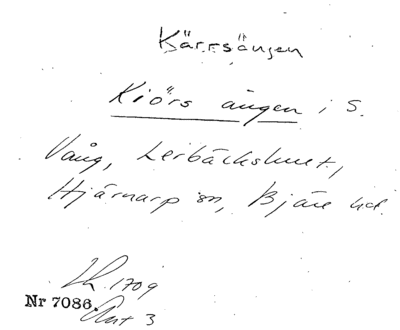 Kärrsängen
Kiörs ängen i S.
Vång, Lerbäckshult,
Hjärnarp sn, Bjäre hd.
LK. 1709
Nr 7086. Akt 3